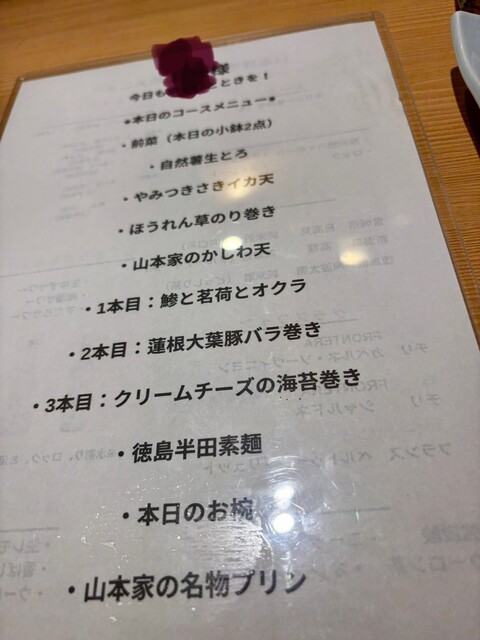 様
今日も ときを！
●本日のコースメニュー●
・前菜（本日の小鉢2点）
・自然薯生とろ
・やみつきさきイカ天
・ほうれん草のり巻き
・山本家のかしわ天
・1本目：鯵と茗荷とオクラ
・2本目：蓮根大葉豚バラ巻き
・3本目：クリームチーズの海苔巻き
・徳島半田素麺
・本日のお椀
・山本家の名物プリン